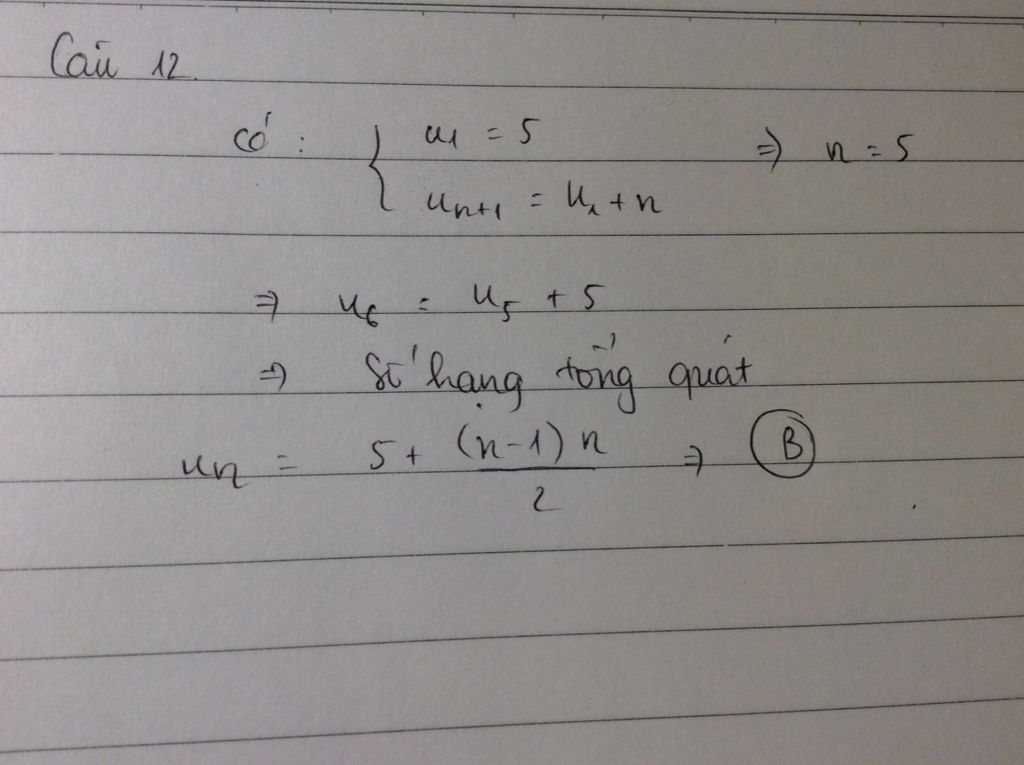 Câu 12.
có : { u₁ = 5 ⇒ n = 5
uₙ₊₁ = uₙ + n
⇒ u₆ = u₅ + 5
⇒ Số hạng tổng quát
uₙ = 5 + (n-1)n / 2 ⇒ B